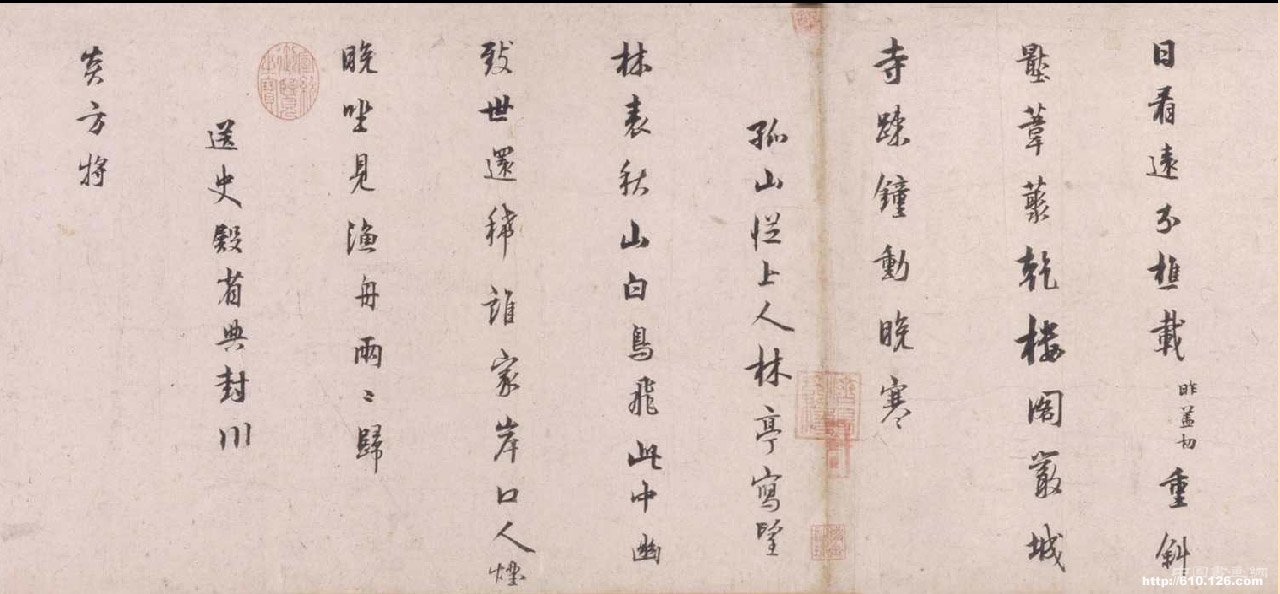 日看遠分樵載昨蓋切重斜
壓葦叢乾樓閣嚴城
寺踈鐘動晚寒
孤山從上人林亭寫望
林表秋山白鳥飛此中幽
致世還稀誰家岸口人煙
晚坐見漁舟兩〻歸
送史殿省典封川
炎方將
http://610.126.com